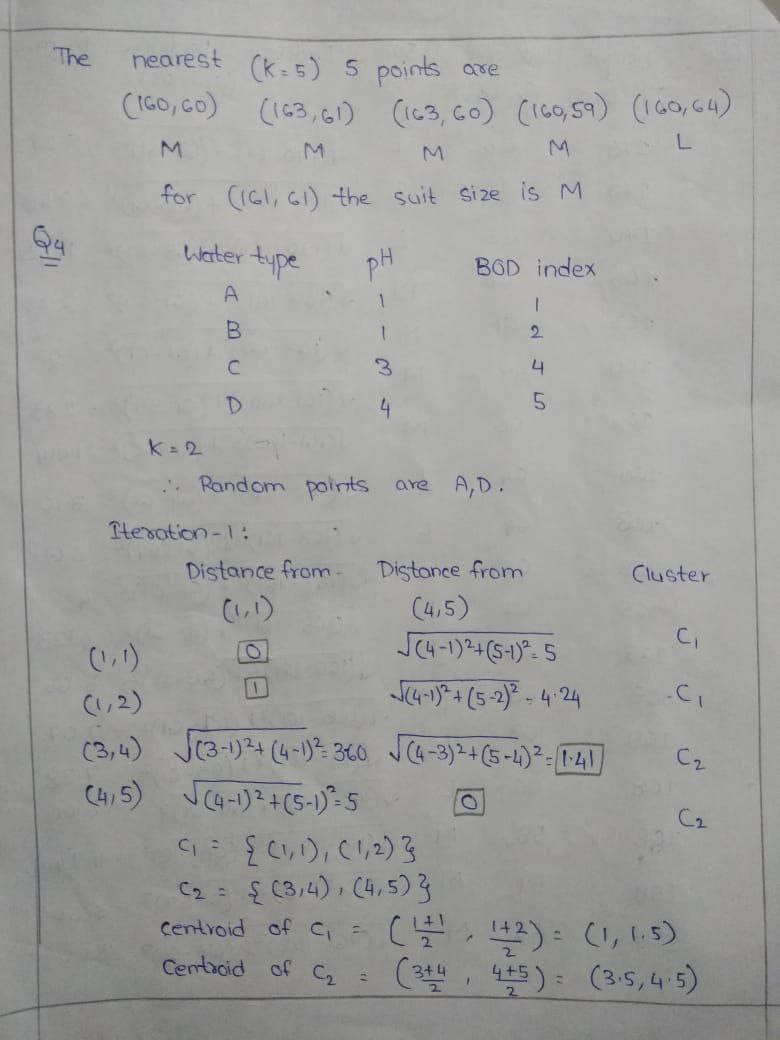 The nearest (K=5) 5 points are
(160,60) (163,61) (163,60) (160,59) (160,64)
M M M M L
for (161,61) the suit size is M
Q4
Water type pH BOD index
A 1 1
B 1 2
C 3 4
D 4 5
K = 2
∴ Random points are A,D.
Iteration-1:
Distance from Distance from Cluster
(1,1) (4,5)
(1,1) 0 √(4-1)²+(5-1)² = 5 C₁
(1,2) 1 √(4-1)²+(5-2)² = 4.24 C₁
(3,4) √(3-1)²+(4-1)² = 360 √(4-3)²+(5-4)² = 1.41 C₂
(4,5) √(4-1)²+(5-1)² = 5 0 C₂
C₁ = {(1,1), (1,2)}
C₂ = {(3,4), (4,5)}
Centroid of C₁ = (1+1/2, 1+2/2) = (1, 1.5)
Centroid of C₂ = (3+4/2, 4+5/2) = (3.5, 4.5)